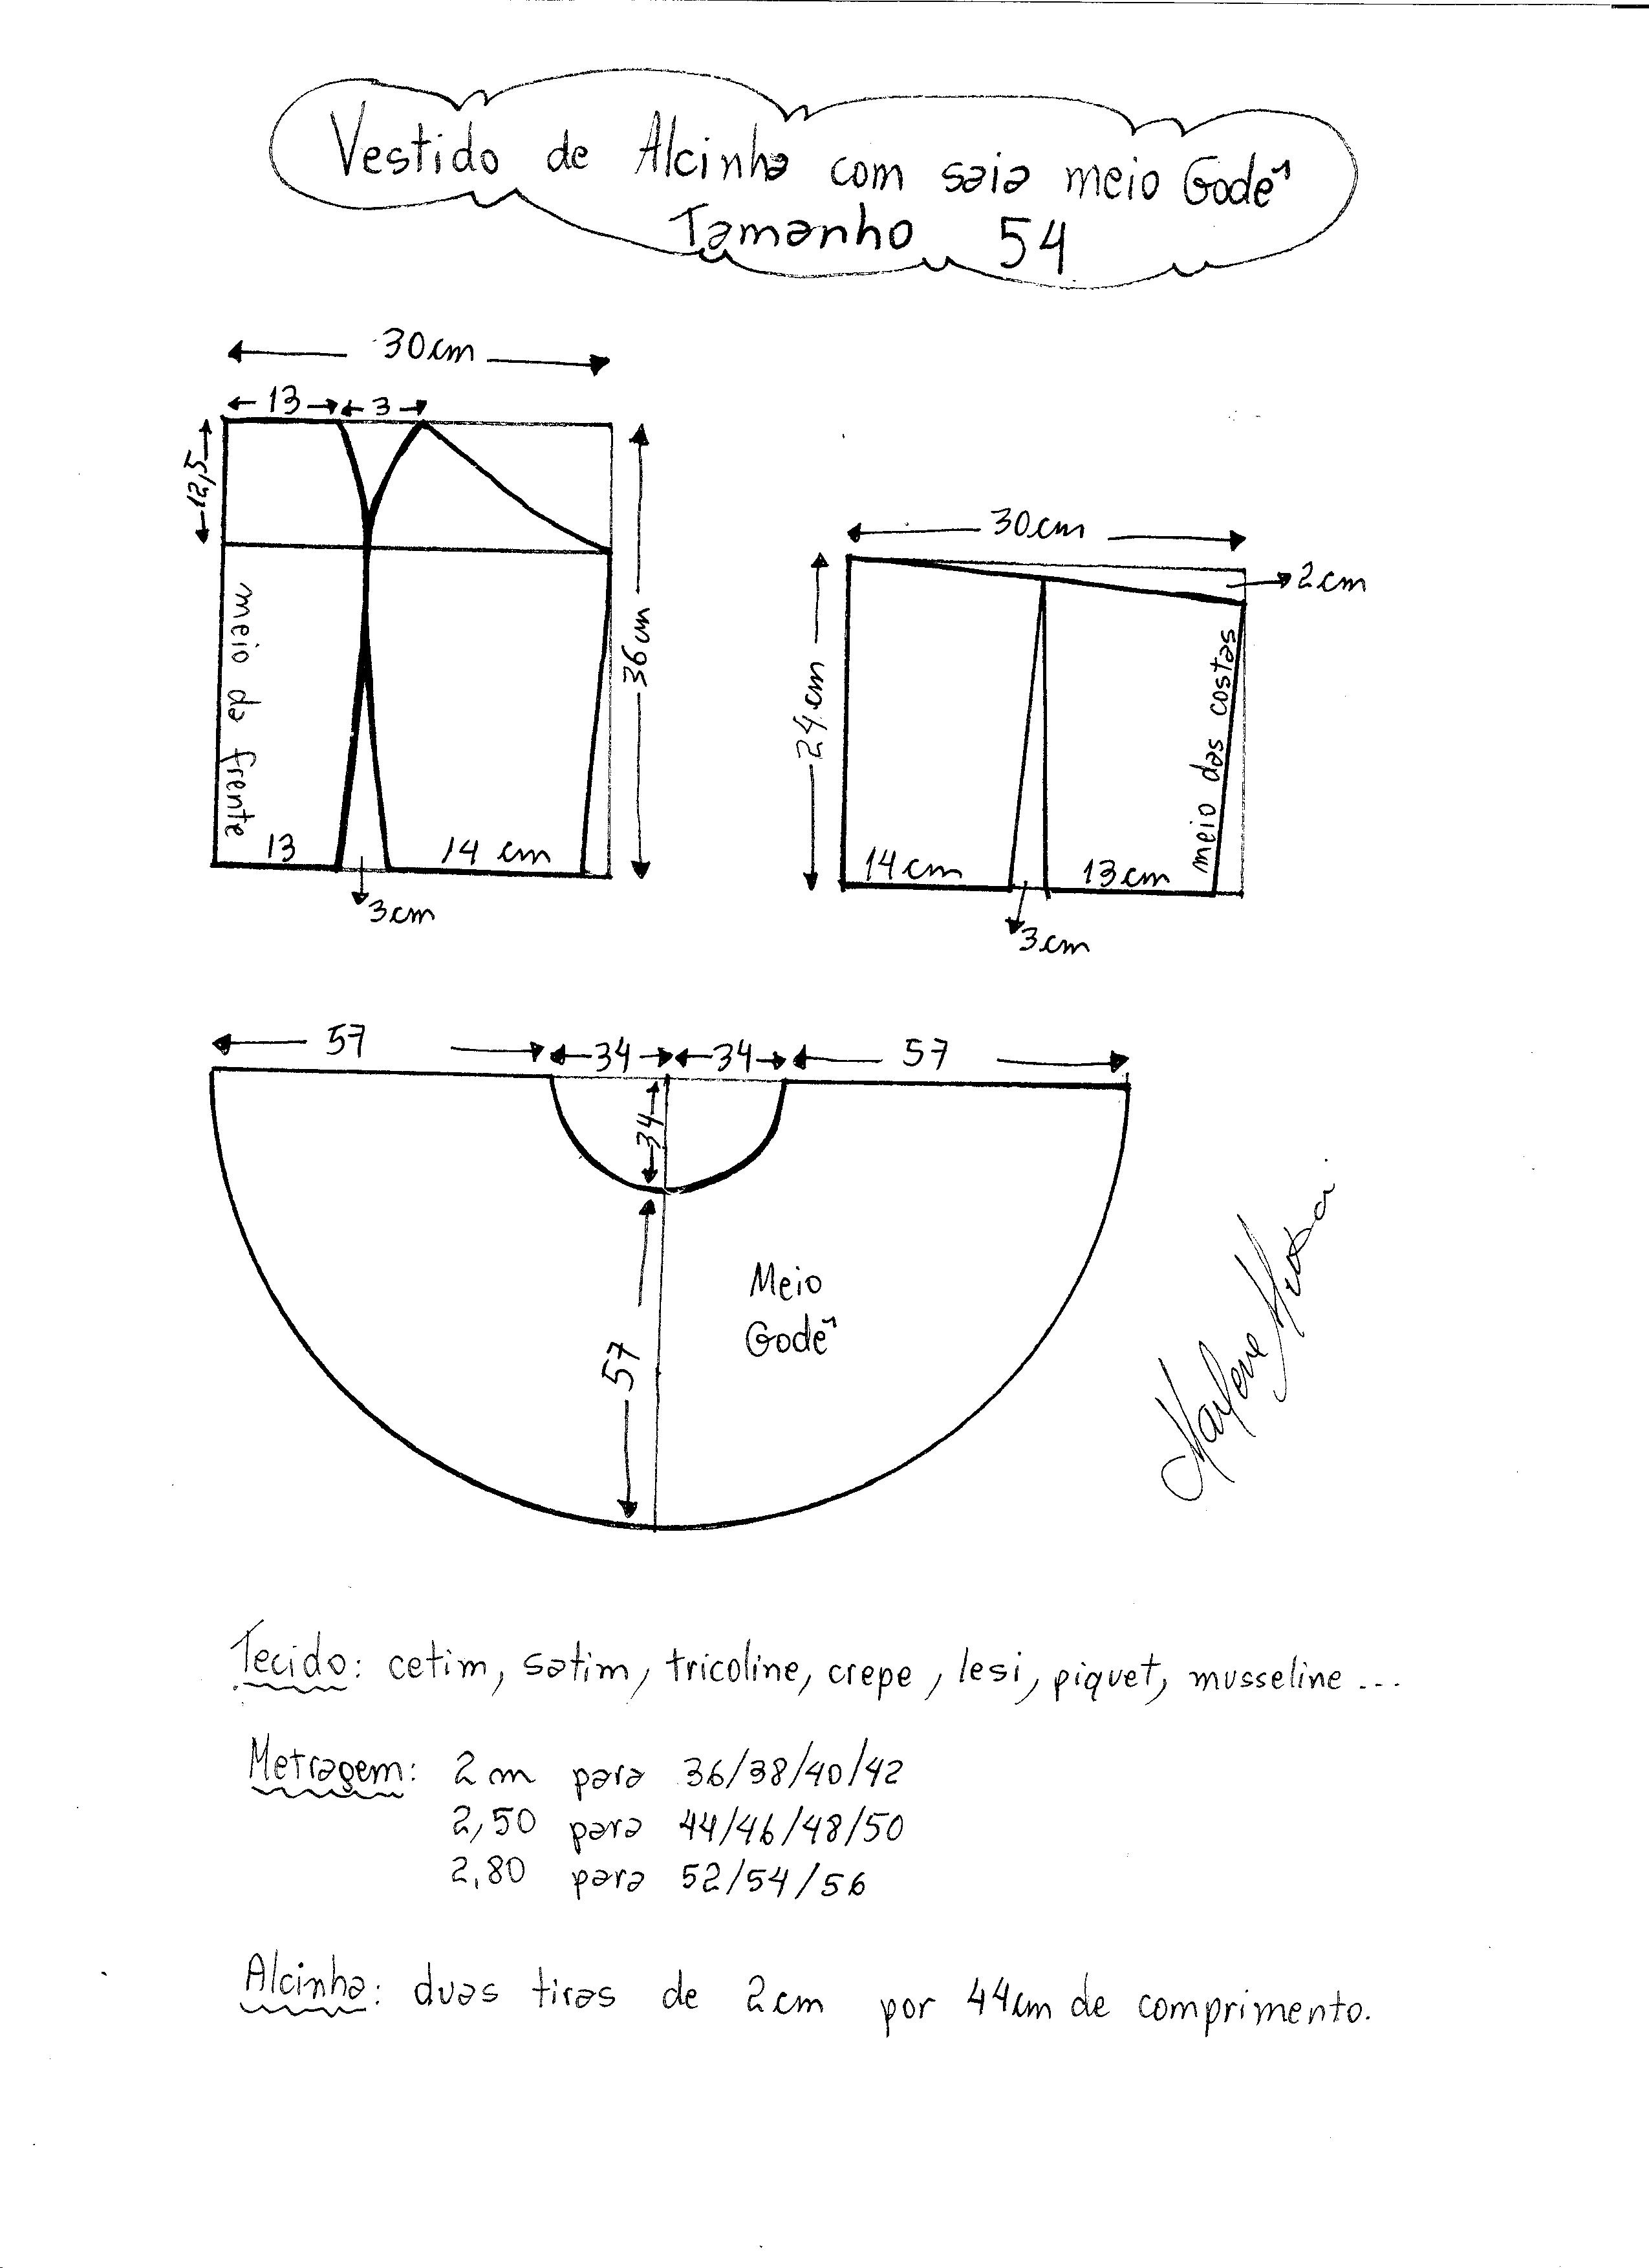 Vestido de Alcinha com saia meio Godê
Tamanho 54
30cm
13
3
12,5
meio da frente
36cm
13
14 cm
3cm
30cm
2cm
24cm
meio das costas
14cm
13cm
3cm
57
34
34
57
34
57
Meio
Godê
Tecido: cetim, satim, tricoline, crepe, lesi, piquet, musseline...
Metragem: 2m para 36/38/40/42
2,50 para 44/46/48/50
2,80 para 52/54/56
Alcinha: duas tiras de 2cm por 44cm de comprimento.